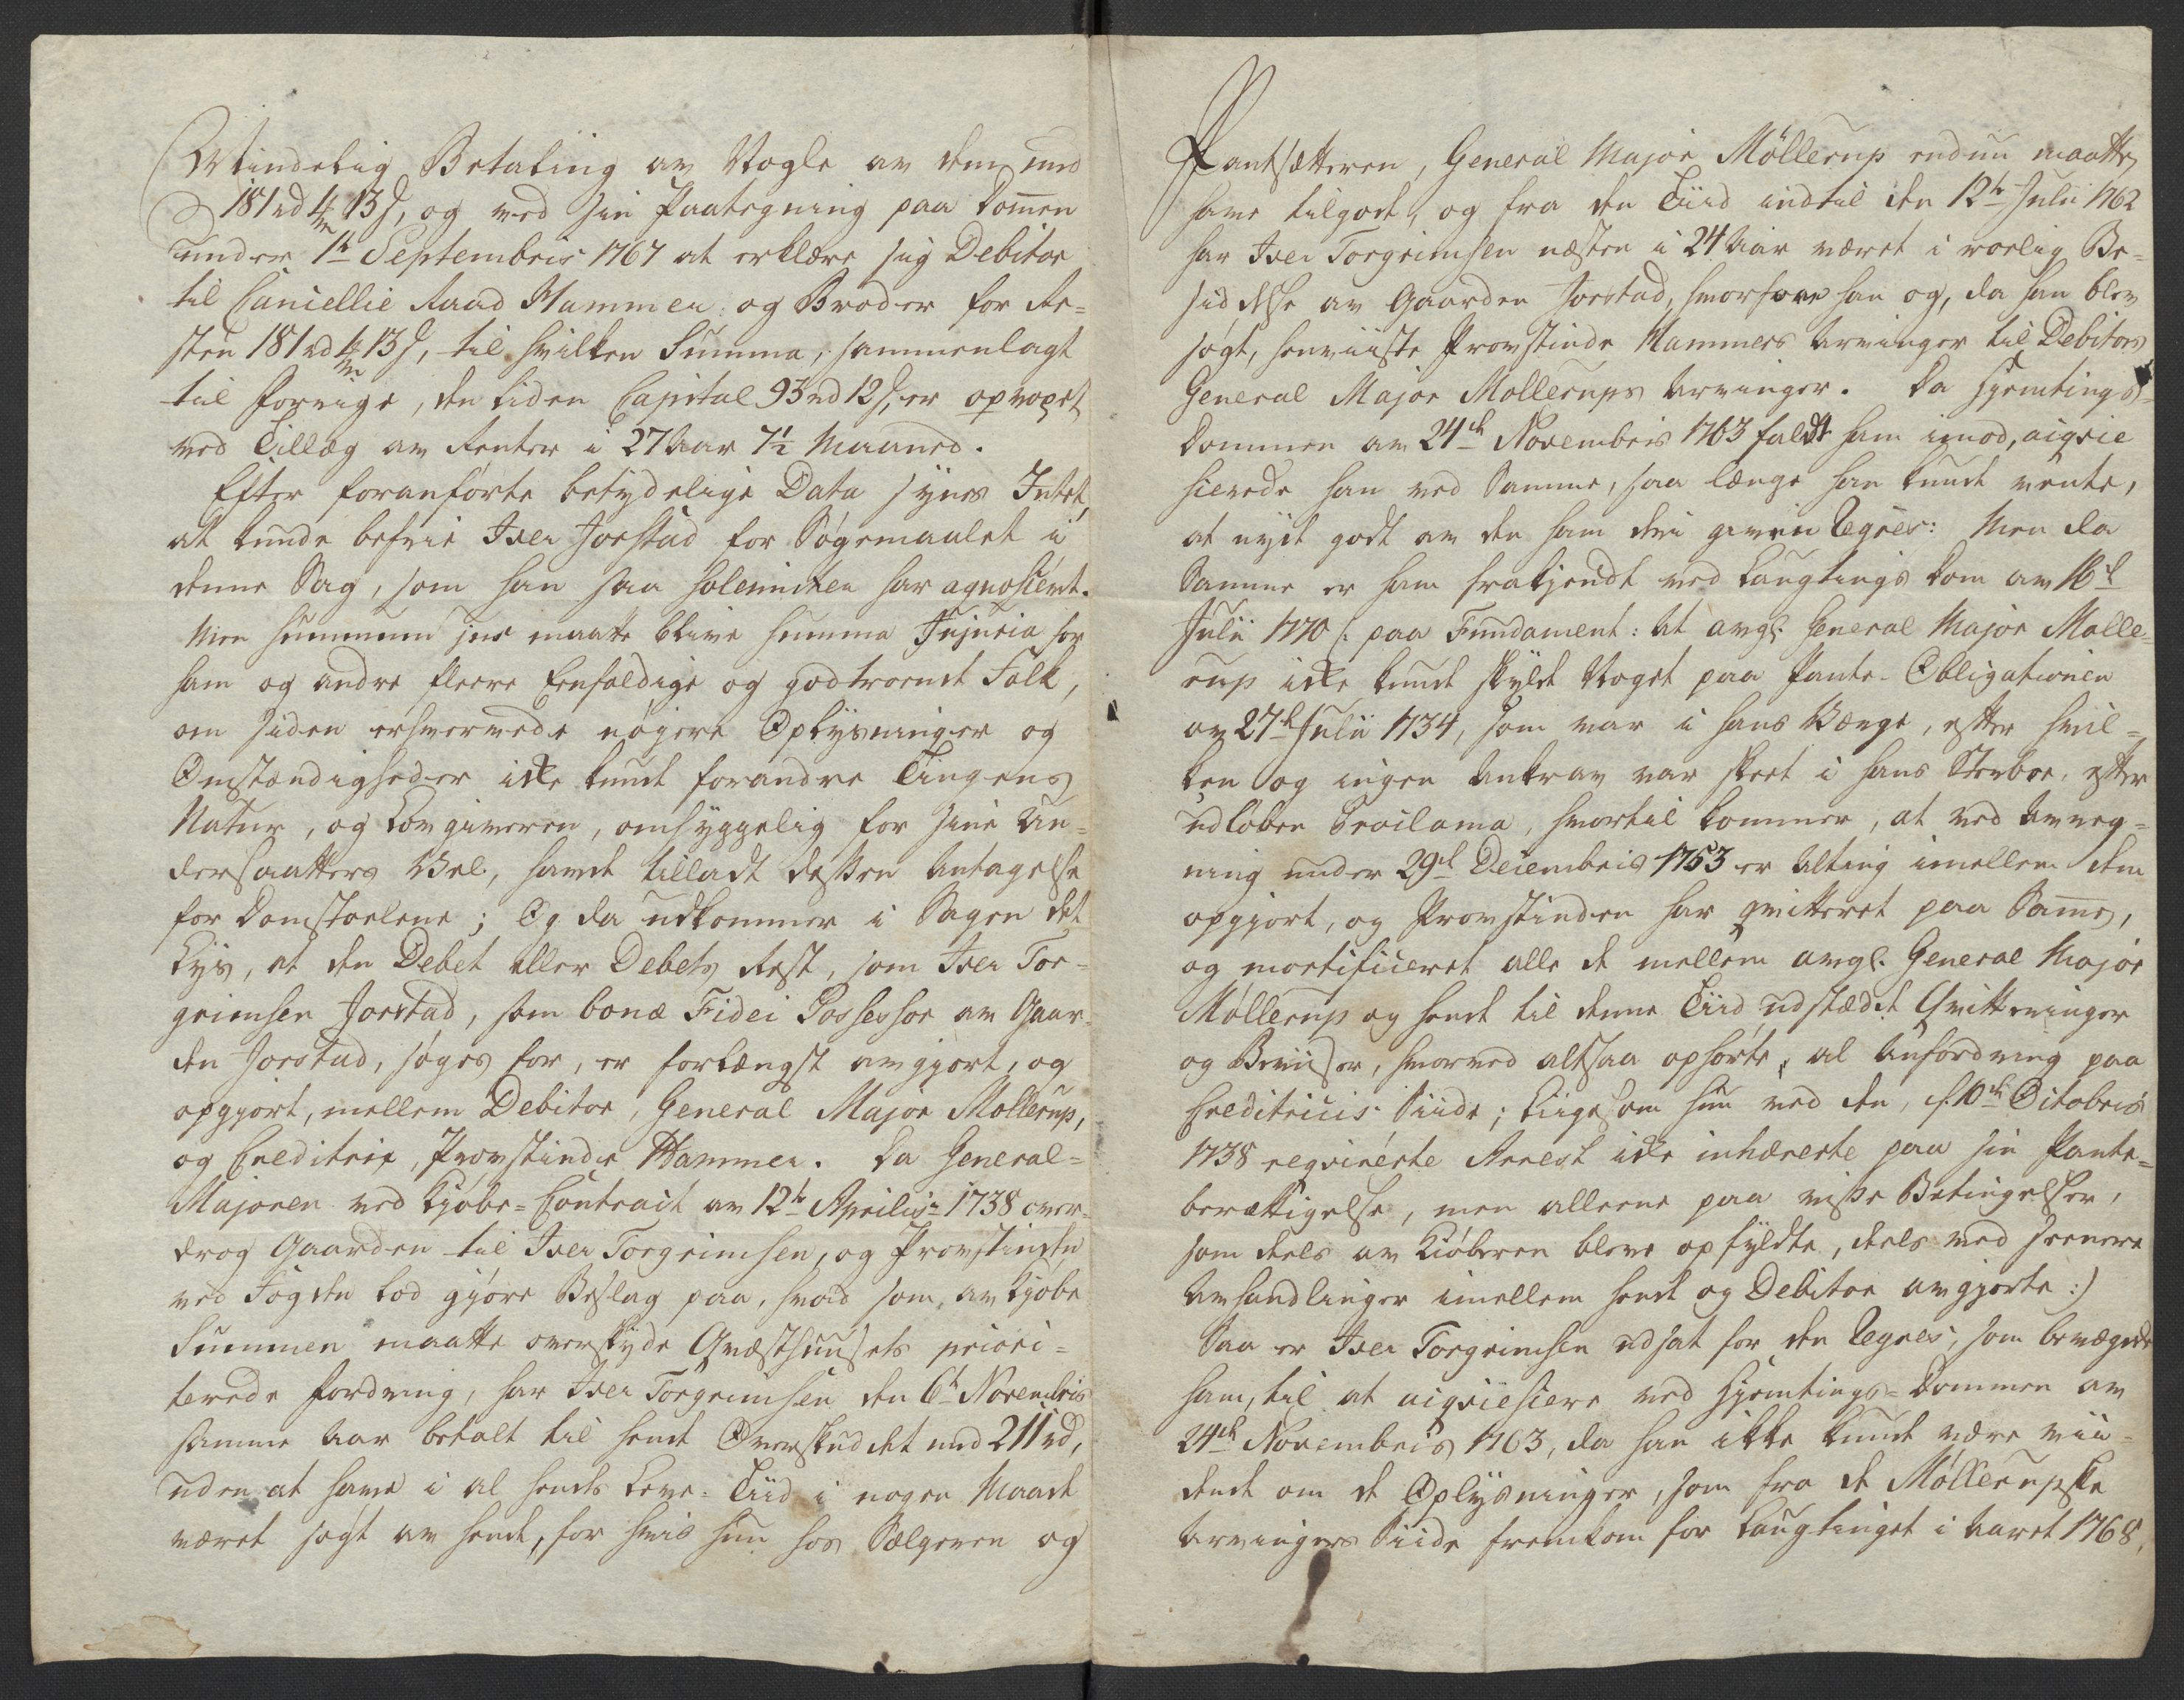 Mindelig Betaling av Nogle av dem med
181 rd 4 mk 13 s, og ved sin Paategning paa Dom̅en
under 1te Septembris 1767 at erklære sig Debitor
til Cancellie Raad Hammer og Broder for Re-
sten 181 rd 4 mk 13 s, til hvilken Summa, sammenlagt
til forrige, den liden Capital 93 rd 12 s, er opvoxet
ved Tillæg av Renter i 27 Aar 7½ Maaned.
Efter foranførte betydelige Data synes Intet,
at kunde befrie Iver Jorstad for Søgemaalet i
denne Sag, som han saa solenniter har agnoscert.
Men summum jus maatte blive summa Injuria for
ham og andre fleere Eenfoldige og godtroende Folk,
om siden erhvervede nøyere Oplysninger og
Omstændigheder ikke kunde forandre Tingens
Natur, og Lovgiveren, omhyggelig for sine Un-
dersaatters Vel, havde tilladt dessen Antagelse
for Domstoelene; Og da udkommer i Sagen det
Lys, at den Debet eller Debets Rest, som Iver Tor-
grimsen Jorstad, som bonæ Fidei Possessor av Gaar-
den Jorstad, søges for, er forlængst avgjort, og
opgjort, mellem Debitor, General Major Møllerup,
og Creditrix, Provstinde Hammer. Da General-
Majoren ved Kjøbe-Contract av 12te Aprilis 1738 over-
drog Gaarden til Iver Torgrimsen, og Provstinden
ved Fogden lod gjøre Beslag paa, hvad som, av Kjøbe
Summen maatte overskyde Qvæsthuusets priori-
terede Fordring, har Iver Torgrimsen den 6te Novembris
samme Aar betalt til hende Overskuddet med 211 rd,
uden at have i al hendes Leve-Tiid i nogen Maade
været søgt av hende, for hvis hun hos Sælgeren og
Pantsætteren, General Major Møllerup endnu maatte
have tilgode, og fra den Tiid indtil den 12te Julii 1762
har Iver Torgrimsen næsten i 24 Aar været i roelig Be-
siddelse av Gaarden Jorstad, hvorfore han og, da han blev
søgt, henviiste Provstinde Hammers Arvinger til Debitors
General Major Møllerups Arvinger. Da Hjemtings-
Dommen av 24de Novembris 1763 faldt ham imod, acqvie
scerede han ved Samme, saa længe han kunde vente,
at nyde godt av den ham deri given Regres: Men da
Samme er ham frakjendt ved Laugtings Dom av 16de
Julii 1770 /: paa Fundament: At avgl. General Major Mølle-
rup ikke kunde skylde Noget paa Pante-Obligationen
av 27de Julii 1734, som var i hans Værge, efter hvil-
ken og ingen Ankrav var skeet i hans Sterboe, efter
udløben Proclama, hvortil kommer, at ved Avreg-
ning under 29de Decembris 1753 er Alting imellem dem
opgjort, og Provstinden har qvitteret paa Sam̅e,
og mortificeret alle de mellem avgl. General Major
Møllerup og hende til denne Tiid udstædde Qvitteringer
og Beviiser, hvorved altsaa ophørte al Anfordring paa
Creditricis Siide; Liigesom hun ved den, d. 10de Octobris
1738 reqvirerte Arrest ikke inhærerte paa sin Pante-
berættigelse, men alleene paa visse Betingelser,
som deels av Kjøberen bleve opfyldte, deels ved seenere
Avhandlinger imellem hende og Debitor avgjorte :/
Saa er Iver Torgrimsen udsat for den Regres, som bevægede
ham, til at acqviescere ved Hjemtings-Dommen av
24de Novembris 1763, da han ikke kunde være vii-
dende om de Oplysninger, som fra de Møllerupske
Arvingers Siide fremkom for Laugtinget i Aaret 1768,